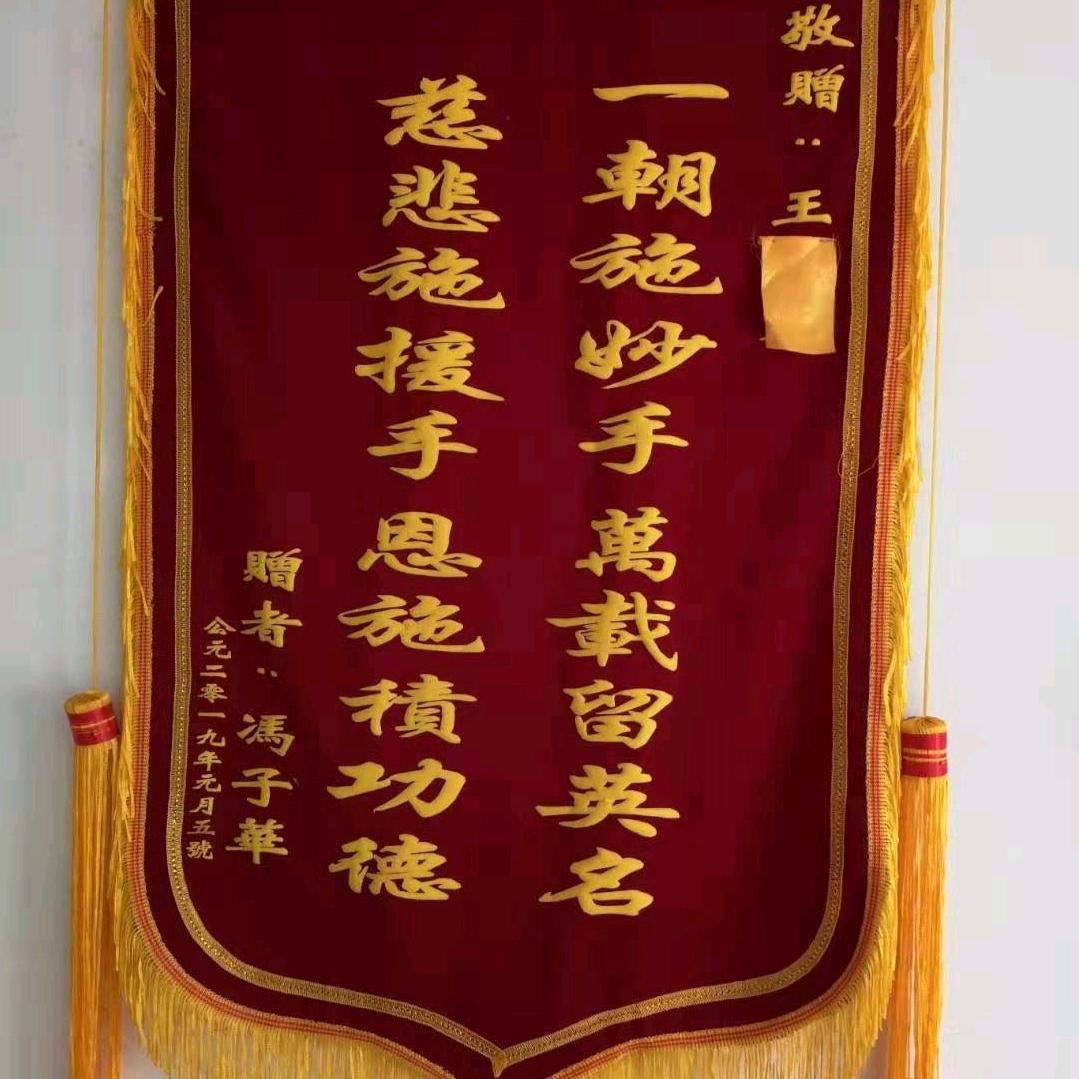 敬贈：王
一朝施妙手萬載留英名
慈悲施援手恩施積功德
贈者：馮子華
公元二零一九年元月五號